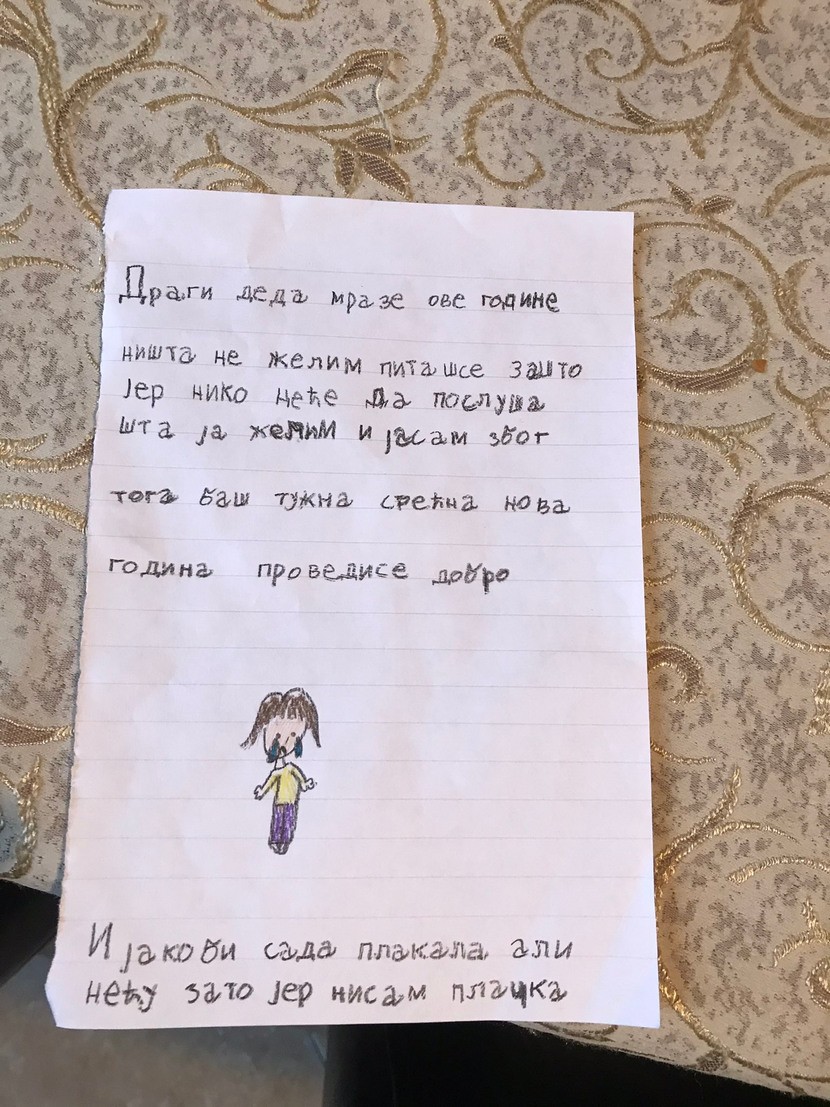 Драги деда мразе ове године
ништа не желим питашсе зашто
јер нико неће да послуша
шта ја желим и јасам због
тога баш тужна срећна нова
година проведисе добро
И јако би сада плакала али
нећу зато јер нисам плачка